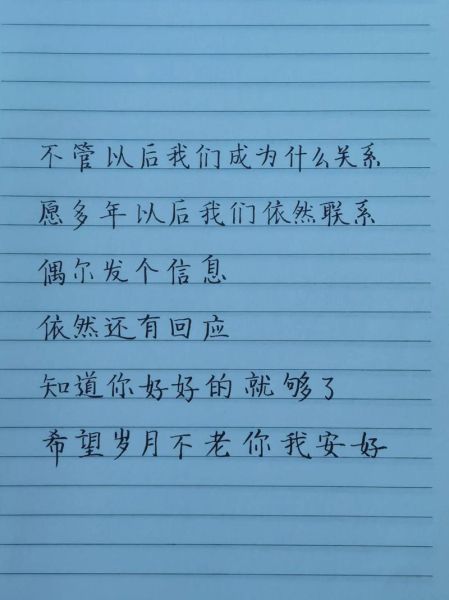 不管以后我们成为什么关系
愿多年以后我们依然联系
偶尔发个信息
依然还有回应
知道你好好的就够了
希望岁月不老你我安好